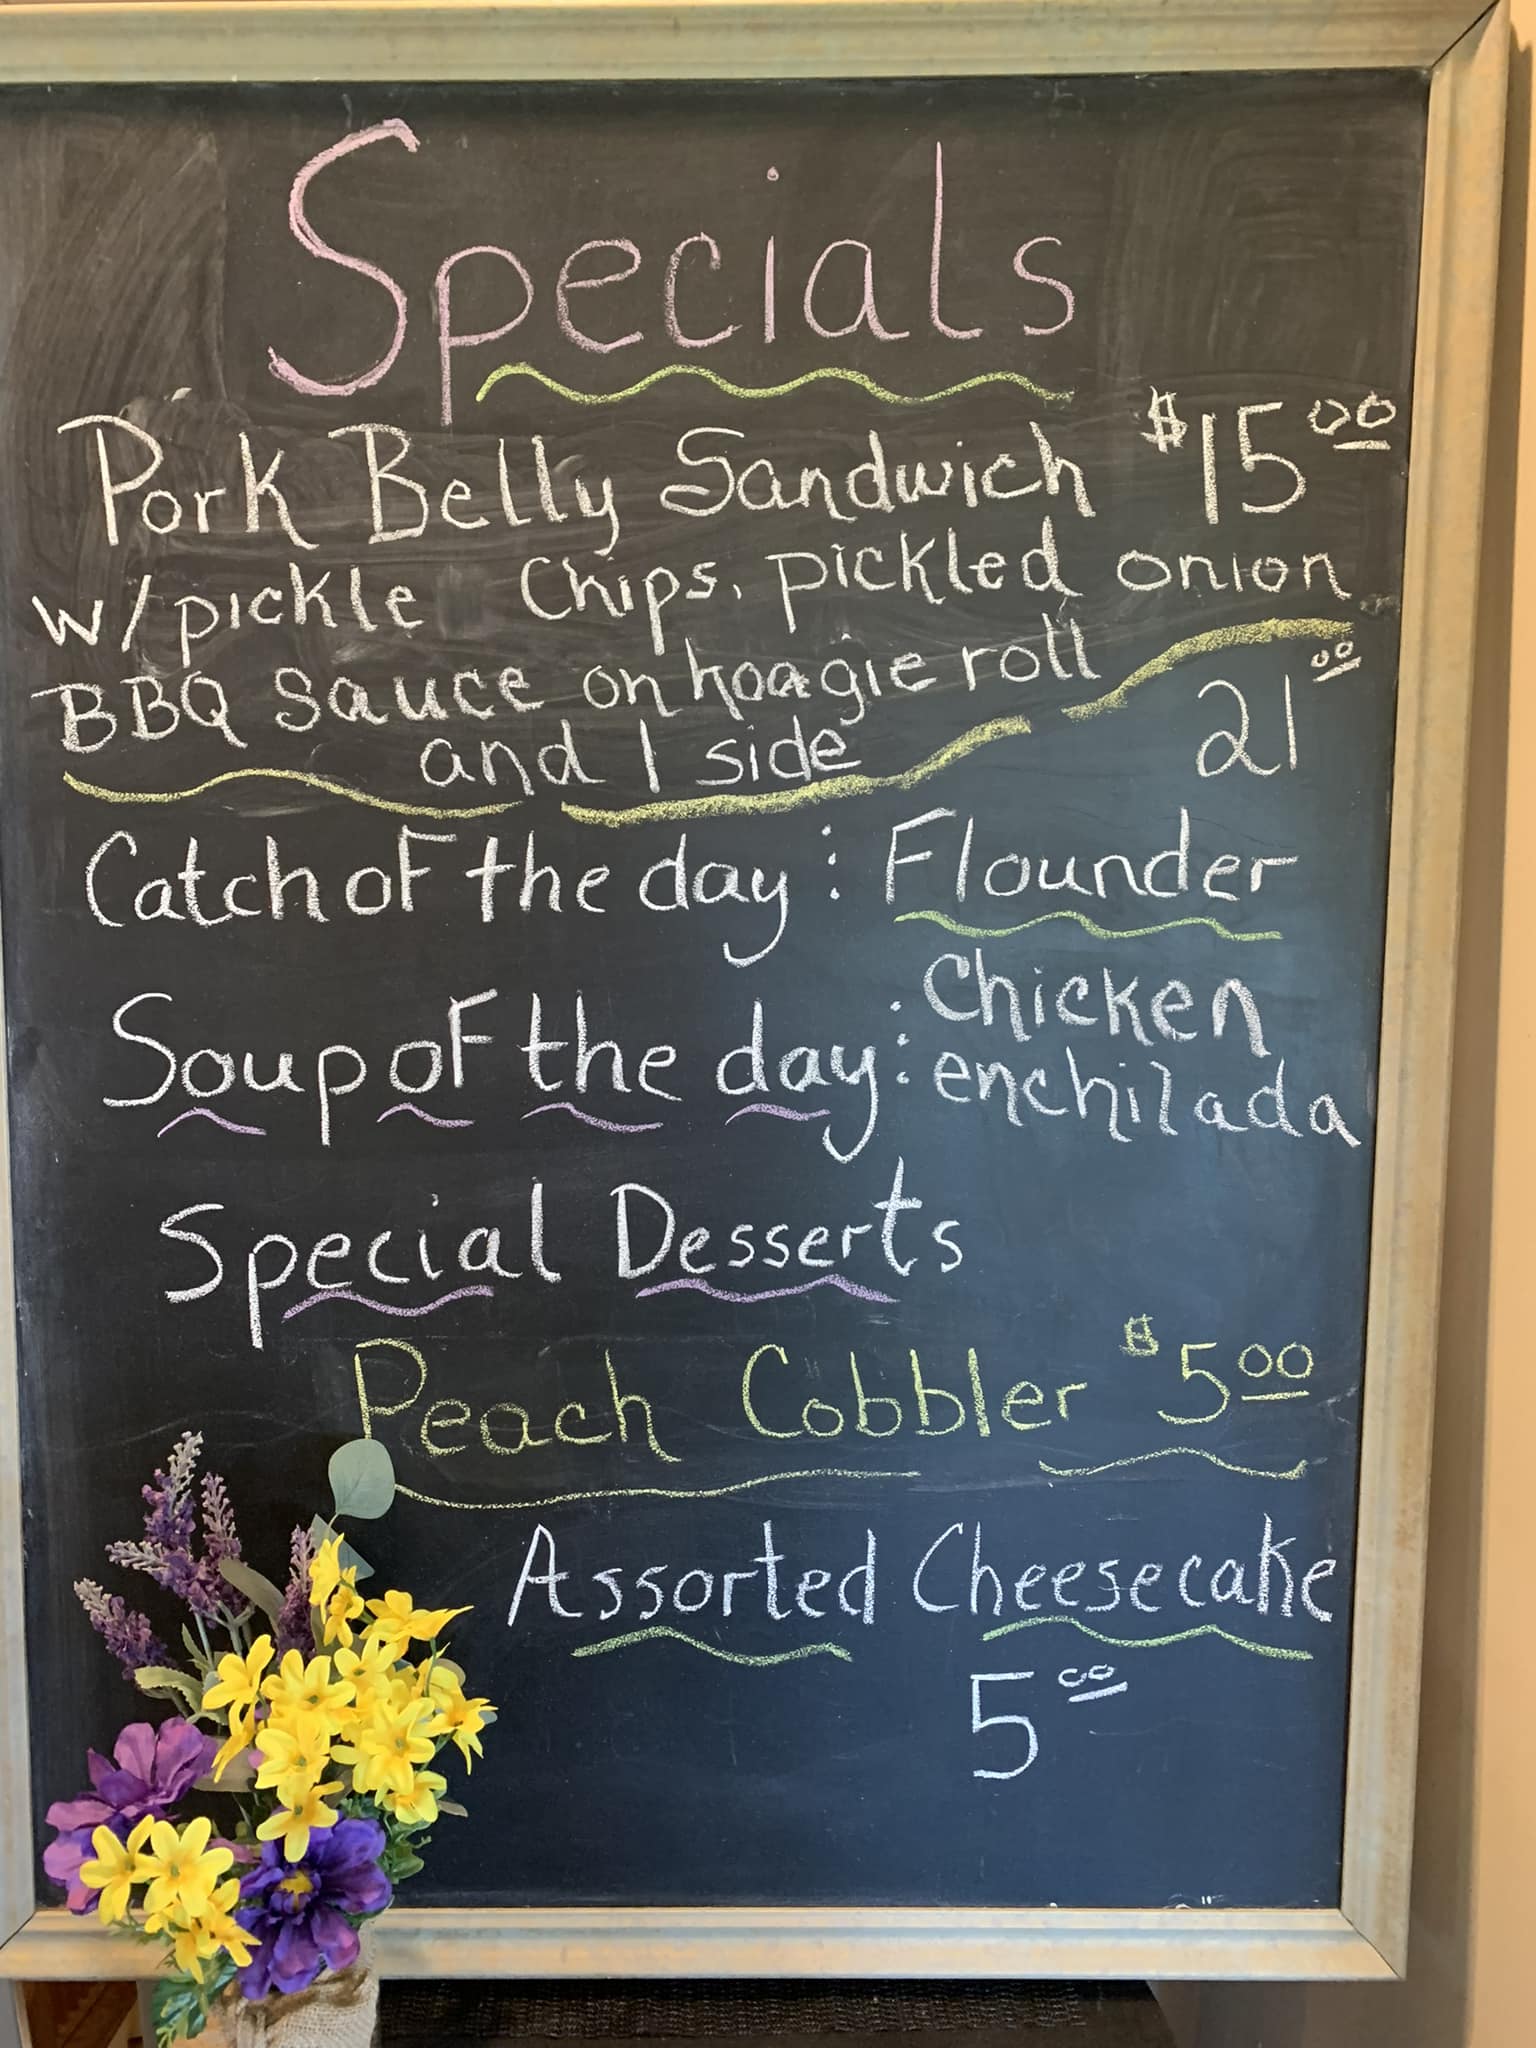 Specials
Pork Belly Sandwich $15.00
w/pickle Chips, pickled onion
BBQ Sauce on hoagie roll
and 1 side
21.00
Catch of the day: Flounder
Soup of the day: Chicken
enchilada
Special Desserts
Peach Cobbler $5.00
Assorted Cheesecake
5.00